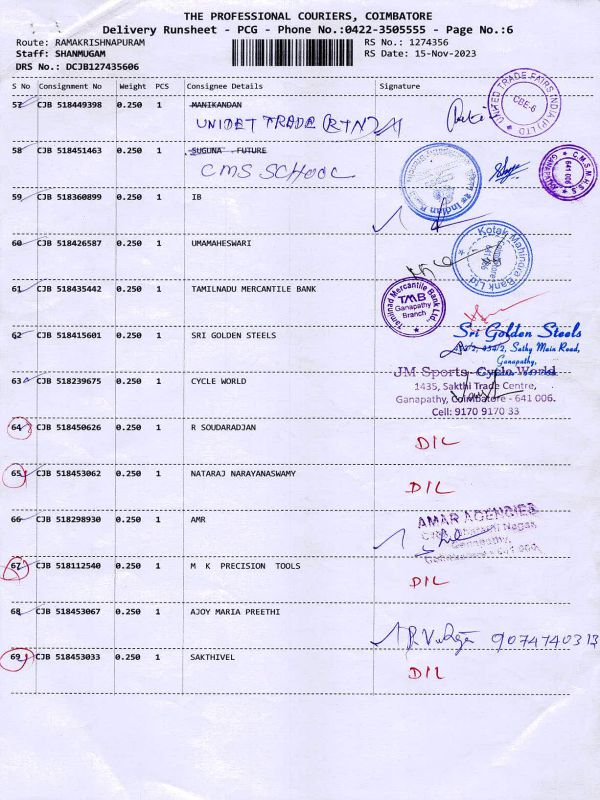 THE PROFESSIONAL COURIERS, COIMBATORE
Delivery Runsheet - PCG - Phone No.:0422-3505555 - Page No.:6
Route: RAMAKRISHNAPURAM RS No.: 1274356
Staff: SHANMUGAM RS Date: 15-Nov-2023
DRS No.: DCJB127435606
S No Consignment No Weight PCS Consignee Details Signature
57 CJB 518449398 0.250 1 MANIKANDAN
UNITED TRADE FAIRS INDIA (P) LTD
CBE-6
58 CJB 518451463 0.250 1 SUGUNA FUTURE
CMS SCHOOL
C.M.S.M.H.S.S
641 006
59 CJB 518360899 0.250 1 IB
60 CJB 518426587 0.250 1 UMAMAHESWARI
Kotak Mahindra Bank Ltd.
61 CJB 518435442 0.250 1 TAMILNADU MERCANTILE BANK
Tamilnad Mercantile Bank Ltd.
TMB
Ganapathy
Branch
62 CJB 518415601 0.250 1 SRI GOLDEN STEELS
Sri Golden Steels
Sathy Main Road,
Ganapathy,
63 CJB 518239675 0.250 1 CYCLE WORLD
JM Sports - Cycle World
1435, Sakthi Trade Centre,
Ganapathy, Coimbatore - 641 006.
Cell: 9170 9170 33
64 CJB 518450626 0.250 1 R SOUDARADJAN
D/L
65 CJB 518453062 0.250 1 NATARAJ NARAYANASWAMY
D/L
66 CJB 518298930 0.250 1 AMR
AMAR AGENCIES
Ganapathy,
67 CJB 518112540 0.250 1 M K PRECISION TOOLS
D/L
68 CJB 518453067 0.250 1 AJOY MARIA PREETHI
9074740313
69 CJB 518453033 0.250 1 SAKTHIVEL
D/L